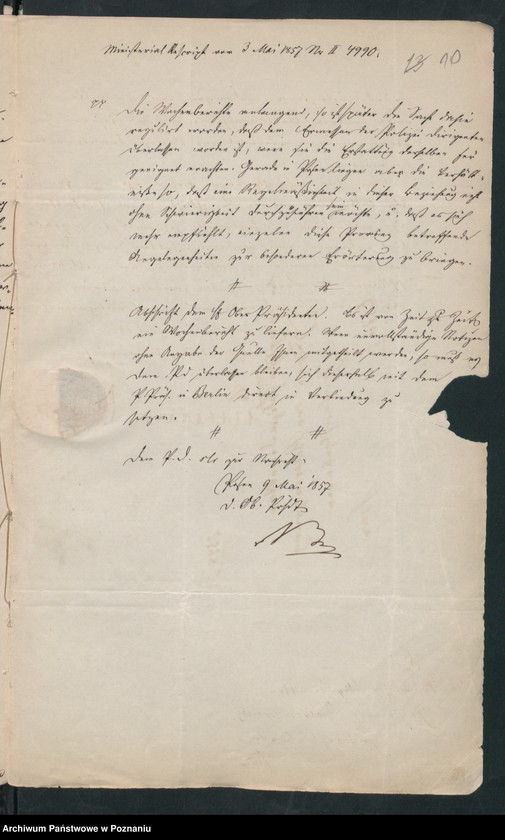 Ministerial Rescript vom 3 Mai 1857 Nr II 4990.
13 10
Die Wochenberichte anlangend, so ist später die Sache dahin
regulirt worden, daß dem Ermessen der Polizei Dirigenten
überlassen worden ist, wenn sie die Erstattung derselben für
geeignet erachten. Gerade in Posen liegen aber die Verhält-
nisse so, daß eine Regelmäßigkeit in dieser Beziehung nicht
ohne Schwierigkeit durchzuführen sein möchte, u. daß es sich
mehr empfiehlt, einzelne diese Provinz betreffende
Angelegenheiten zur besonderen Erörterung zu bringen.
Abschrift dem Ober Präsidenten. Es ist von Zeit zu Zeit
ein Wochenbericht zu liefern. Wenn unvollständige Notizen
ohne Angabe der Quelle Ihnen mitgetheilt werden, so muß es
dem P.D. überlassen bleiben, sich dieserhalb mit dem
P. Präs. in Berlin direct in Verbindung zu
setzen.
Dem P. D. zur Nachricht.
Posen 9 Mai 1857
D. Ob. Präsdt
Archiwum Państwowe w Poznaniu